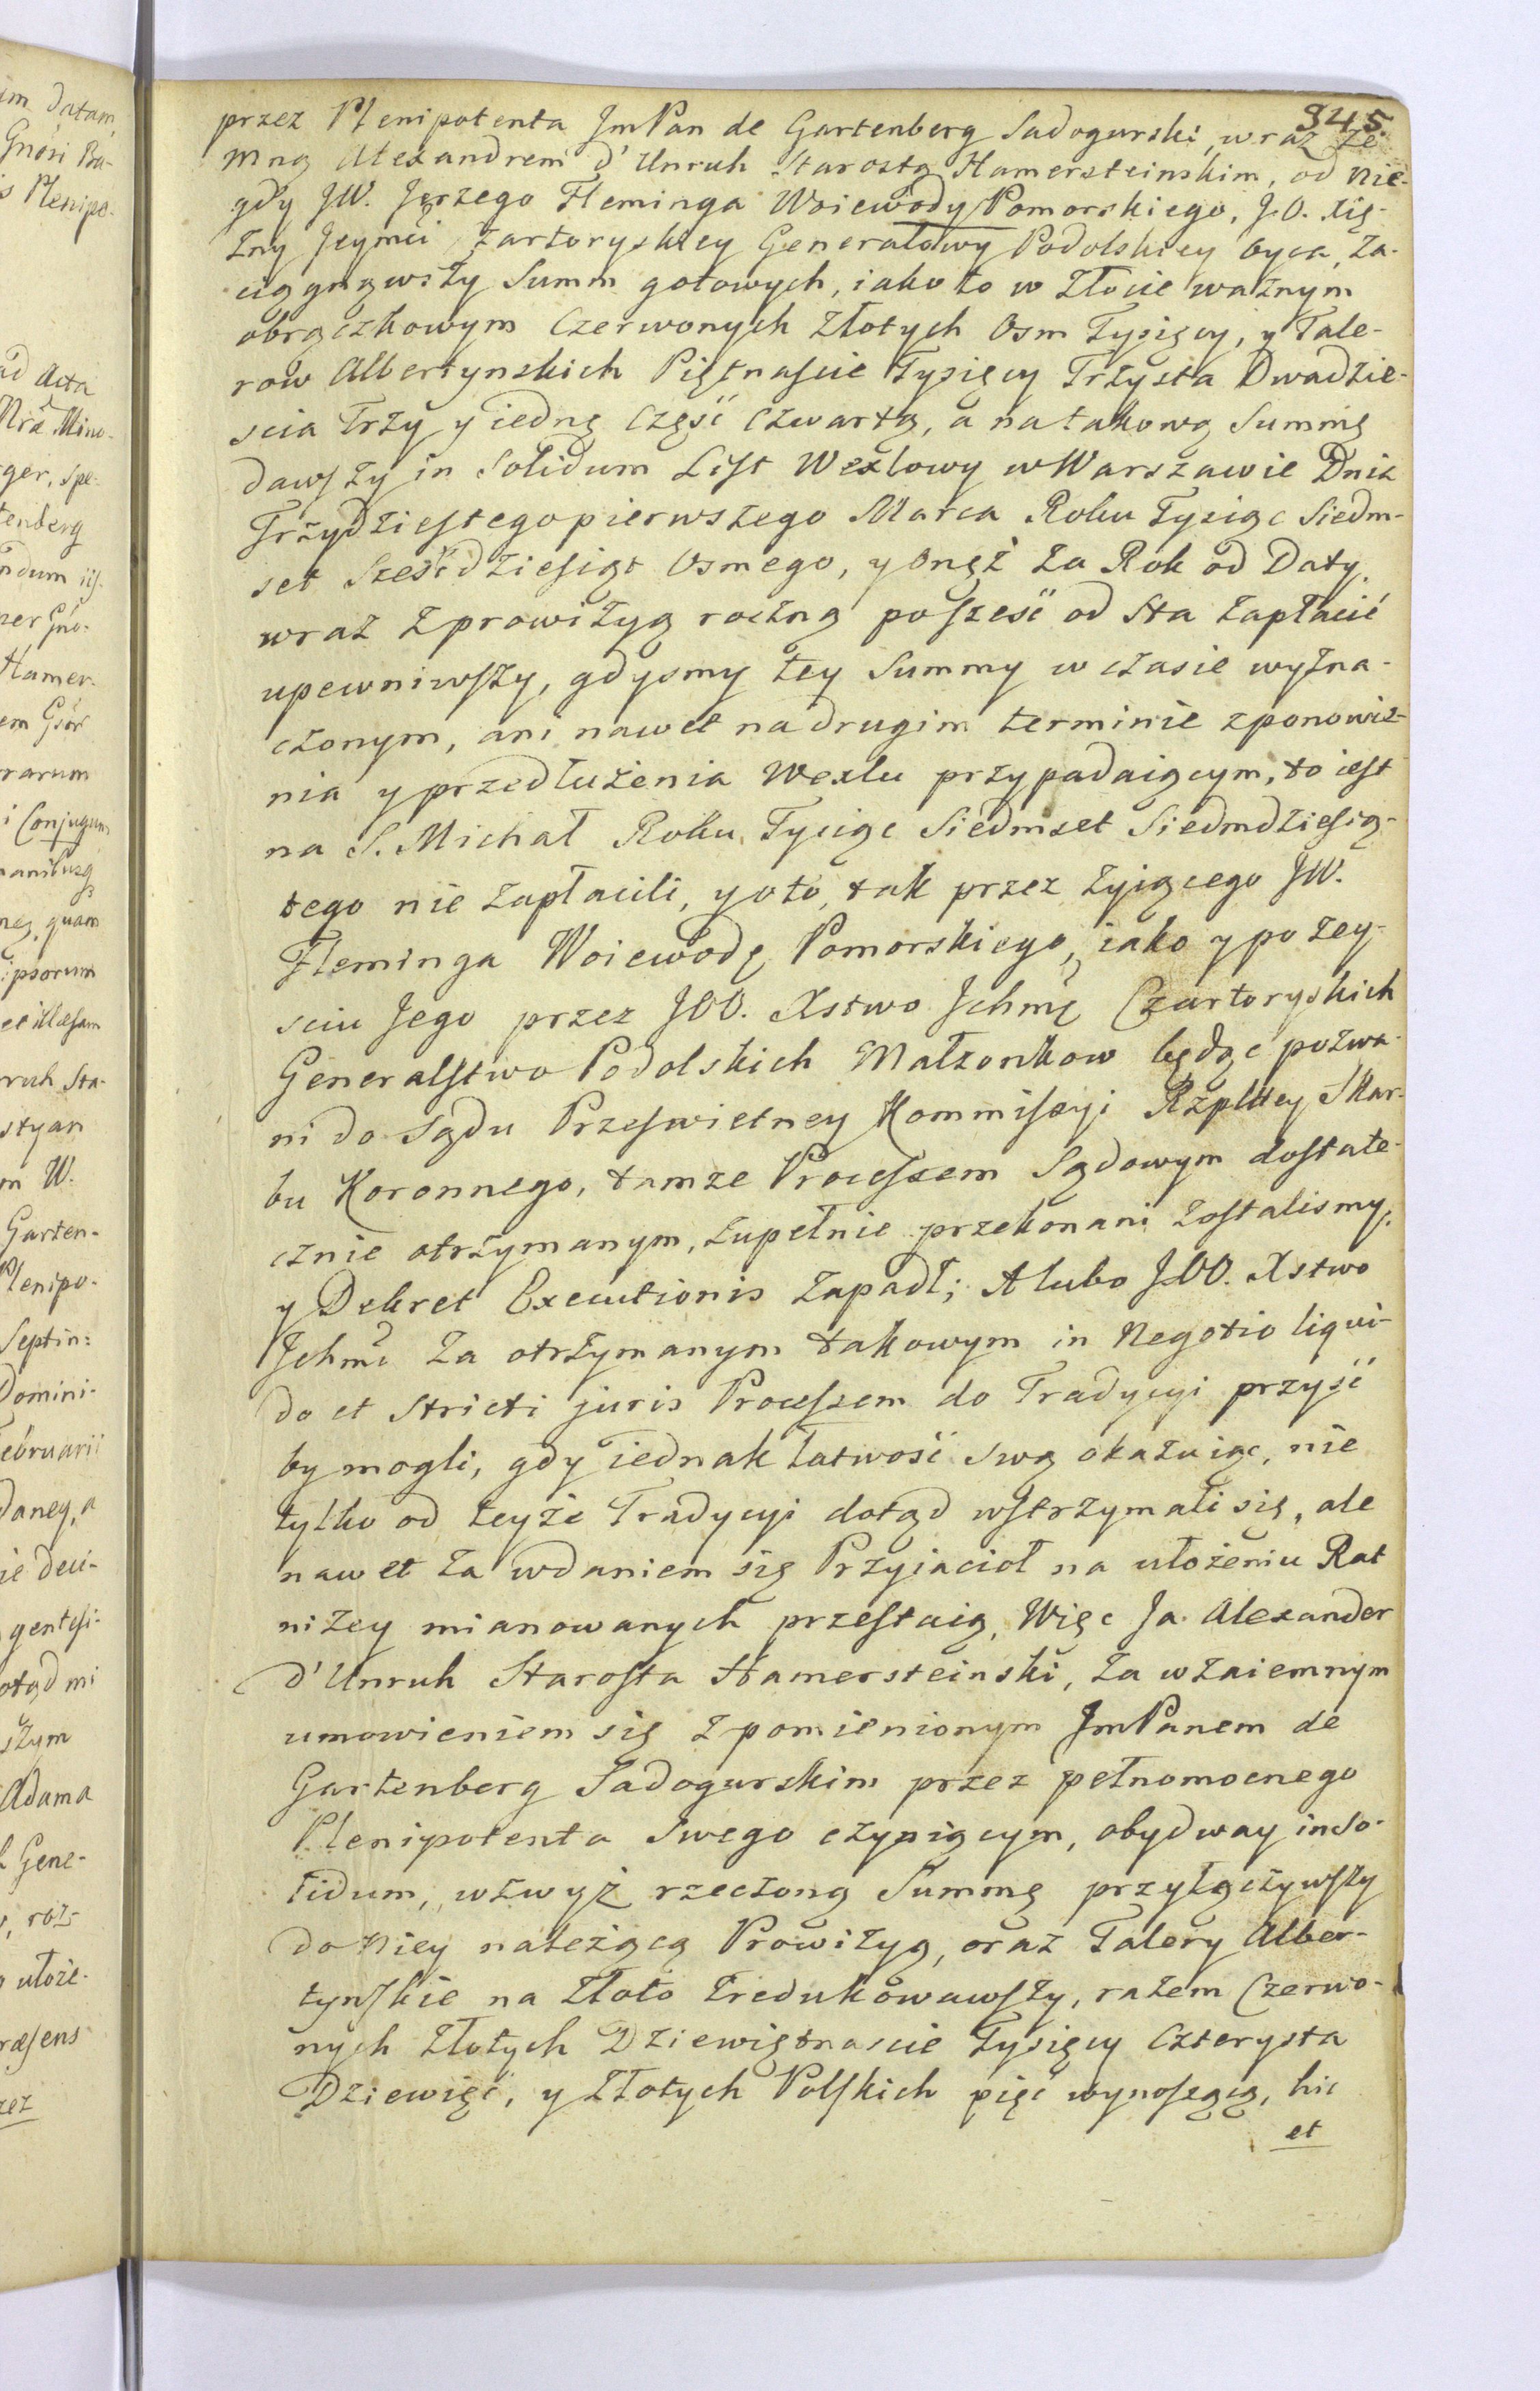 345.
przez Plenipotenta JmPan de Gartenberg Sadogurski, wraz ze
mną Alexandrem d'Unruh Starostą Hamersteinskim, od nie-
gdy JW. Jerzego Fleminga Woiewody Pomorskiego, J.O. Xię-
żny Jeymci Czartoryskiey Generałowy Podolskiey oyca, za-
ciągnąwszy Summ gotowych, iako to w Złocie ważnym
obrączkowym Czerwonych Złotych Osm Tysięcy, y Tale-
row Albertynskich Piętnaście Tysięcy Trzysta Dwadzie-
scia Trzy y iednę Część Czwartą, a na takową Summę
dawszy in Solidum List Wexlowy w Warszawie Dnia
Trzydziestego pierwszego Marca Roku Tysiąc Siedm-
set Sześćdziesiąt Osmego, y onęż za Rok od Daty
wraz z prowizyą roczną po sześć od Sta zapłacić
upewniwszy, gdysmy tey Summy w czasie wyzna-
czonym, ani nawet na drugim terminie z ponowie-
nia y przedłużenia Wexlu przypadaiącym, to iest
na S. Michał Roku Tysiąc Siedmset Siedmdziesią-
tego nie zapłacili, y o to, tak przez żyiącego JW.
Fleminga Woiewodę Pomorskiego, iako y po zey-
sciu Jego przez JOO. Xstwo Ichmć Czartoryskich
Generalstwo Podolskich Małzonkow będąc pozwa-
ni do Sądu Przeswietney Kommissyi Rzpltey Skar-
bu Koronnego, tamze Processem Sądowym dostate-
cznie otrzymanym, zupełnie przekonani zostalismy,
y Dekret Executionis zapadł; A lubo JOO. Xstwo
Ichmć za otrzymanym takowym in Negotio liqui-
do et stricti juris Processem do Tradycyi przyść
by mogli, gdy iednak łatwość swą okazuiąc, nie
tylko od teyże Tradycyi dotąd wstrzymali się, ale
nawet za wdaniem się Przyiacioł na ułożeniu Rat
niżey mianowanych przestaią, Więc Ja Alexander
d'Unruh Starosta Hamersteinski, za wzaiemnym
umowieniem się z pomienionym JmPanem de
Gartenberg Sadogurskim przez pełnomocnego
Plenipotenta Swego czyniącym, obydway in So-
lidum, wzwyż rzeczoną Summę przyłączywszy
do niey należącą Prowizyą, oraz Talery Alber-
tynskie na Złoto zredukowawszy, razem Czerwo-
nych Złotych Dziewiętnascie Tysięcy Czterysta
Dziewięć, y Złotych Polskich pięć wynoszącą, hic
et